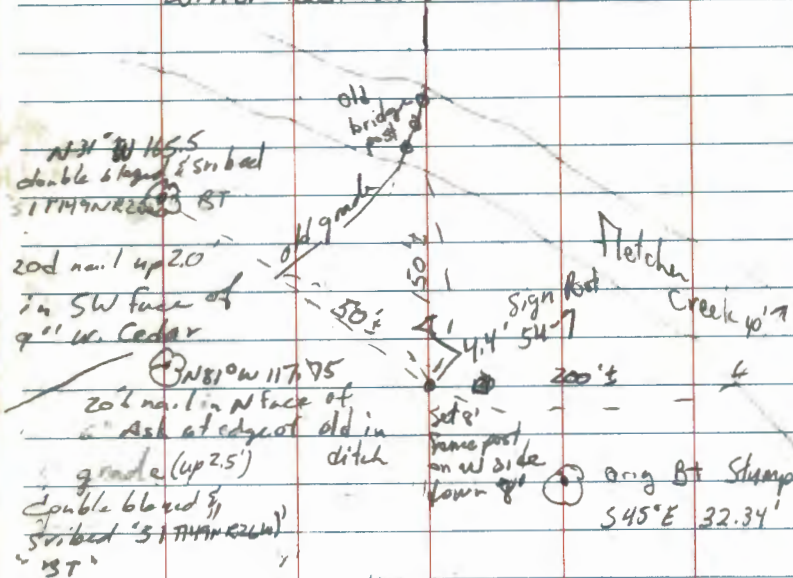 old
bridge
post
N31°W 165.5
double blazed & sribed
BT
old grade
20d nail up 2.0'
in SW face of
9" W. Cedar
50'±
50'±
Fletcher
Creek 40'
Sign Post
4.4' 54"
200'±
N81°W 117.75
20d nail in N face of
Ash at edge of old in
ditch
grade (up 2.5')
double blazed &
sribed "S1 T149N R26W
"BT"
Set 8'
fence post
on W side
down 8"
orig Bt Stump
S45°E 32.34'